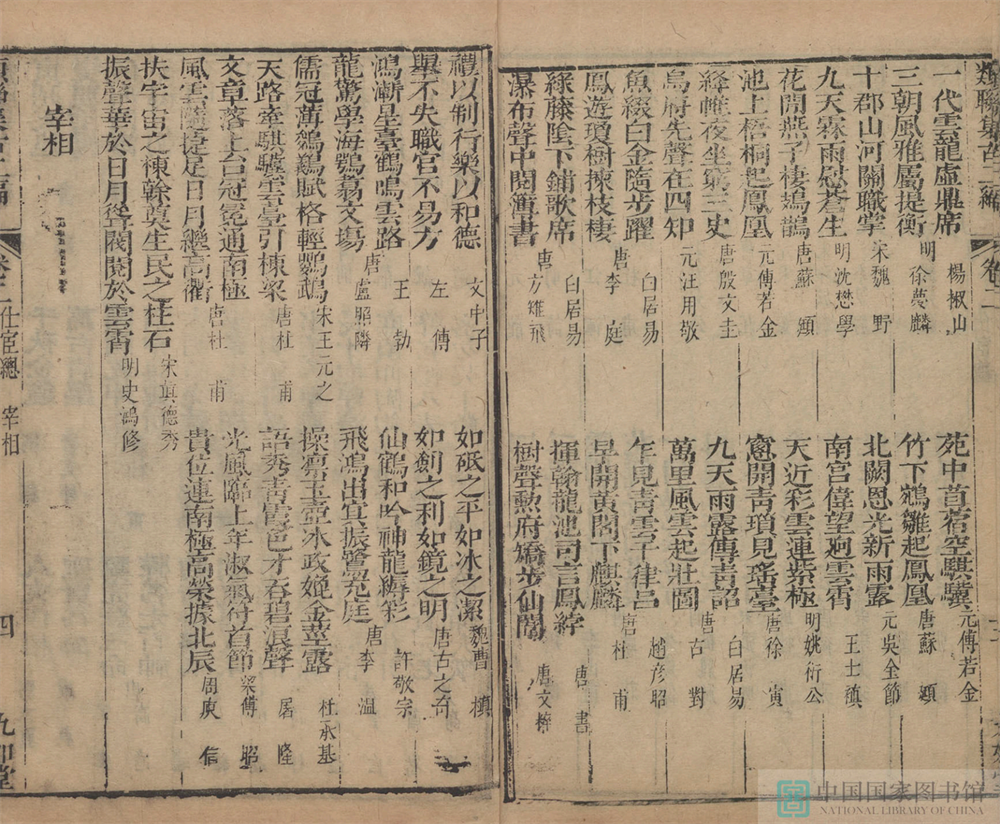 類聯集古二編
卷二
一代雲龍虛鼎席 楊椒山 苑中苜蓿空騏驥 元傅若金
三朝風雅屬提衡 明徐夢麟 竹下鵷雛起鳳凰 唐蘇頲
十郡山河關職掌 宋魏野 北闕恩光新雨露 元吳全節
九天霖雨慰蒼生 明沈懋學 南宮偉望迥雲霄 王士禛
花間燕子棲鳷鵲 唐蘇頲 天近彩雲連紫極 明姚衍公
池上梧桐起鳳凰 元傅若金 窗開青瑣見瑤臺 唐徐寅
絳帷夜坐窮三史 唐殷文圭 九天雨露傳青詔 白居易
烏府先聲在四知 元汪用敬 萬里風雲起壯圖 古對
魚綴白金隨步躍 白居易 乍見青雲干律呂 趙彥昭
鳳遊瓊樹揀枝棲 唐李庭 早開黃閣下麒麟 唐杜甫
綠藤陰下鋪歌席 白居易 揮翰龍池司言鳳綍 唐書
瀑布聲中閱簿書 唐方雄飛 樹聲勲府矯步仙闈 唐文粹
禮以制行樂以和德 文中子 如砥之平如冰之潔 魏曹植
舉不失職官不易方 左傳 如劍之利如鏡之明 唐古之奇
鴻漸星臺鶴鳴雲路 王勃 仙鶴和吟神龍縟彩 許敬宗
龍驚學海鶚翥文場 唐盧照鄰 飛鴻出宜振鷺充庭 唐李溫
儒冠薄鵕鸃賦格輕鸚鵡 宋王元之 操凛玉壺冰政媲金莖露 杜承基
天路牽騏驥雲臺引棟梁 唐杜甫 語秀青霞色才吞碧浪聲 屠隆
文章落上台冠冕通南極 光風臨上年淑氣符首節 梁傅昭
風雲隨捷足日月繼高衢 唐杜甫 貴位連南極高榮據北辰 周庾信
扶宇宙之棟幹奠生民之柱石 宋真德秀
振聲華於日月聳閥閱於雲霄 明史鴻修
宰相
卷二 仕宦總 宰相 四
中国国家图书馆
NATIONAL LIBRARY OF CHINA